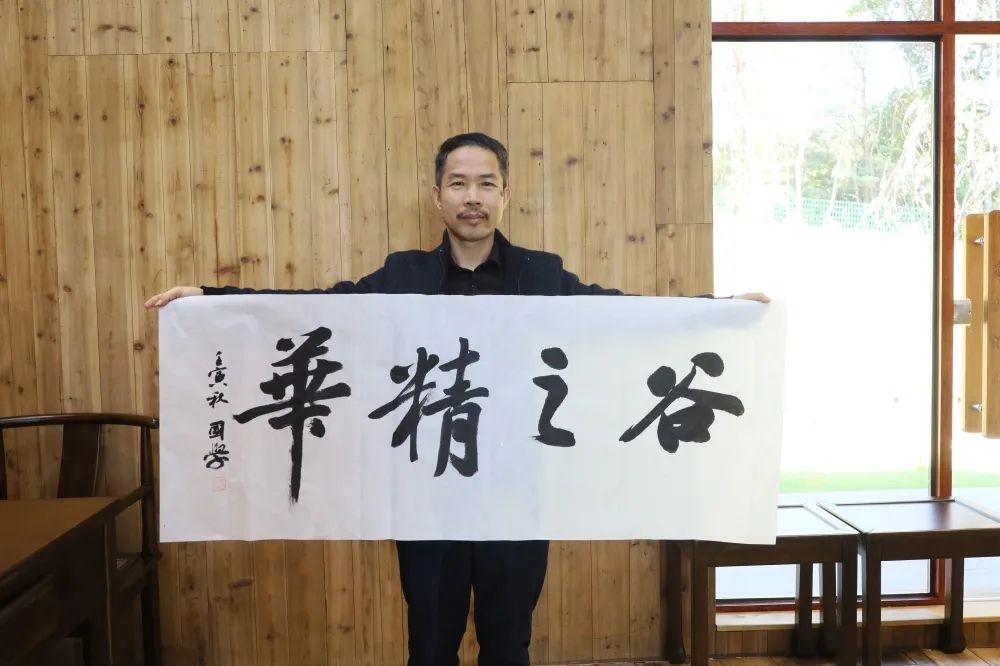 谷之精華
壬寅秋 國學